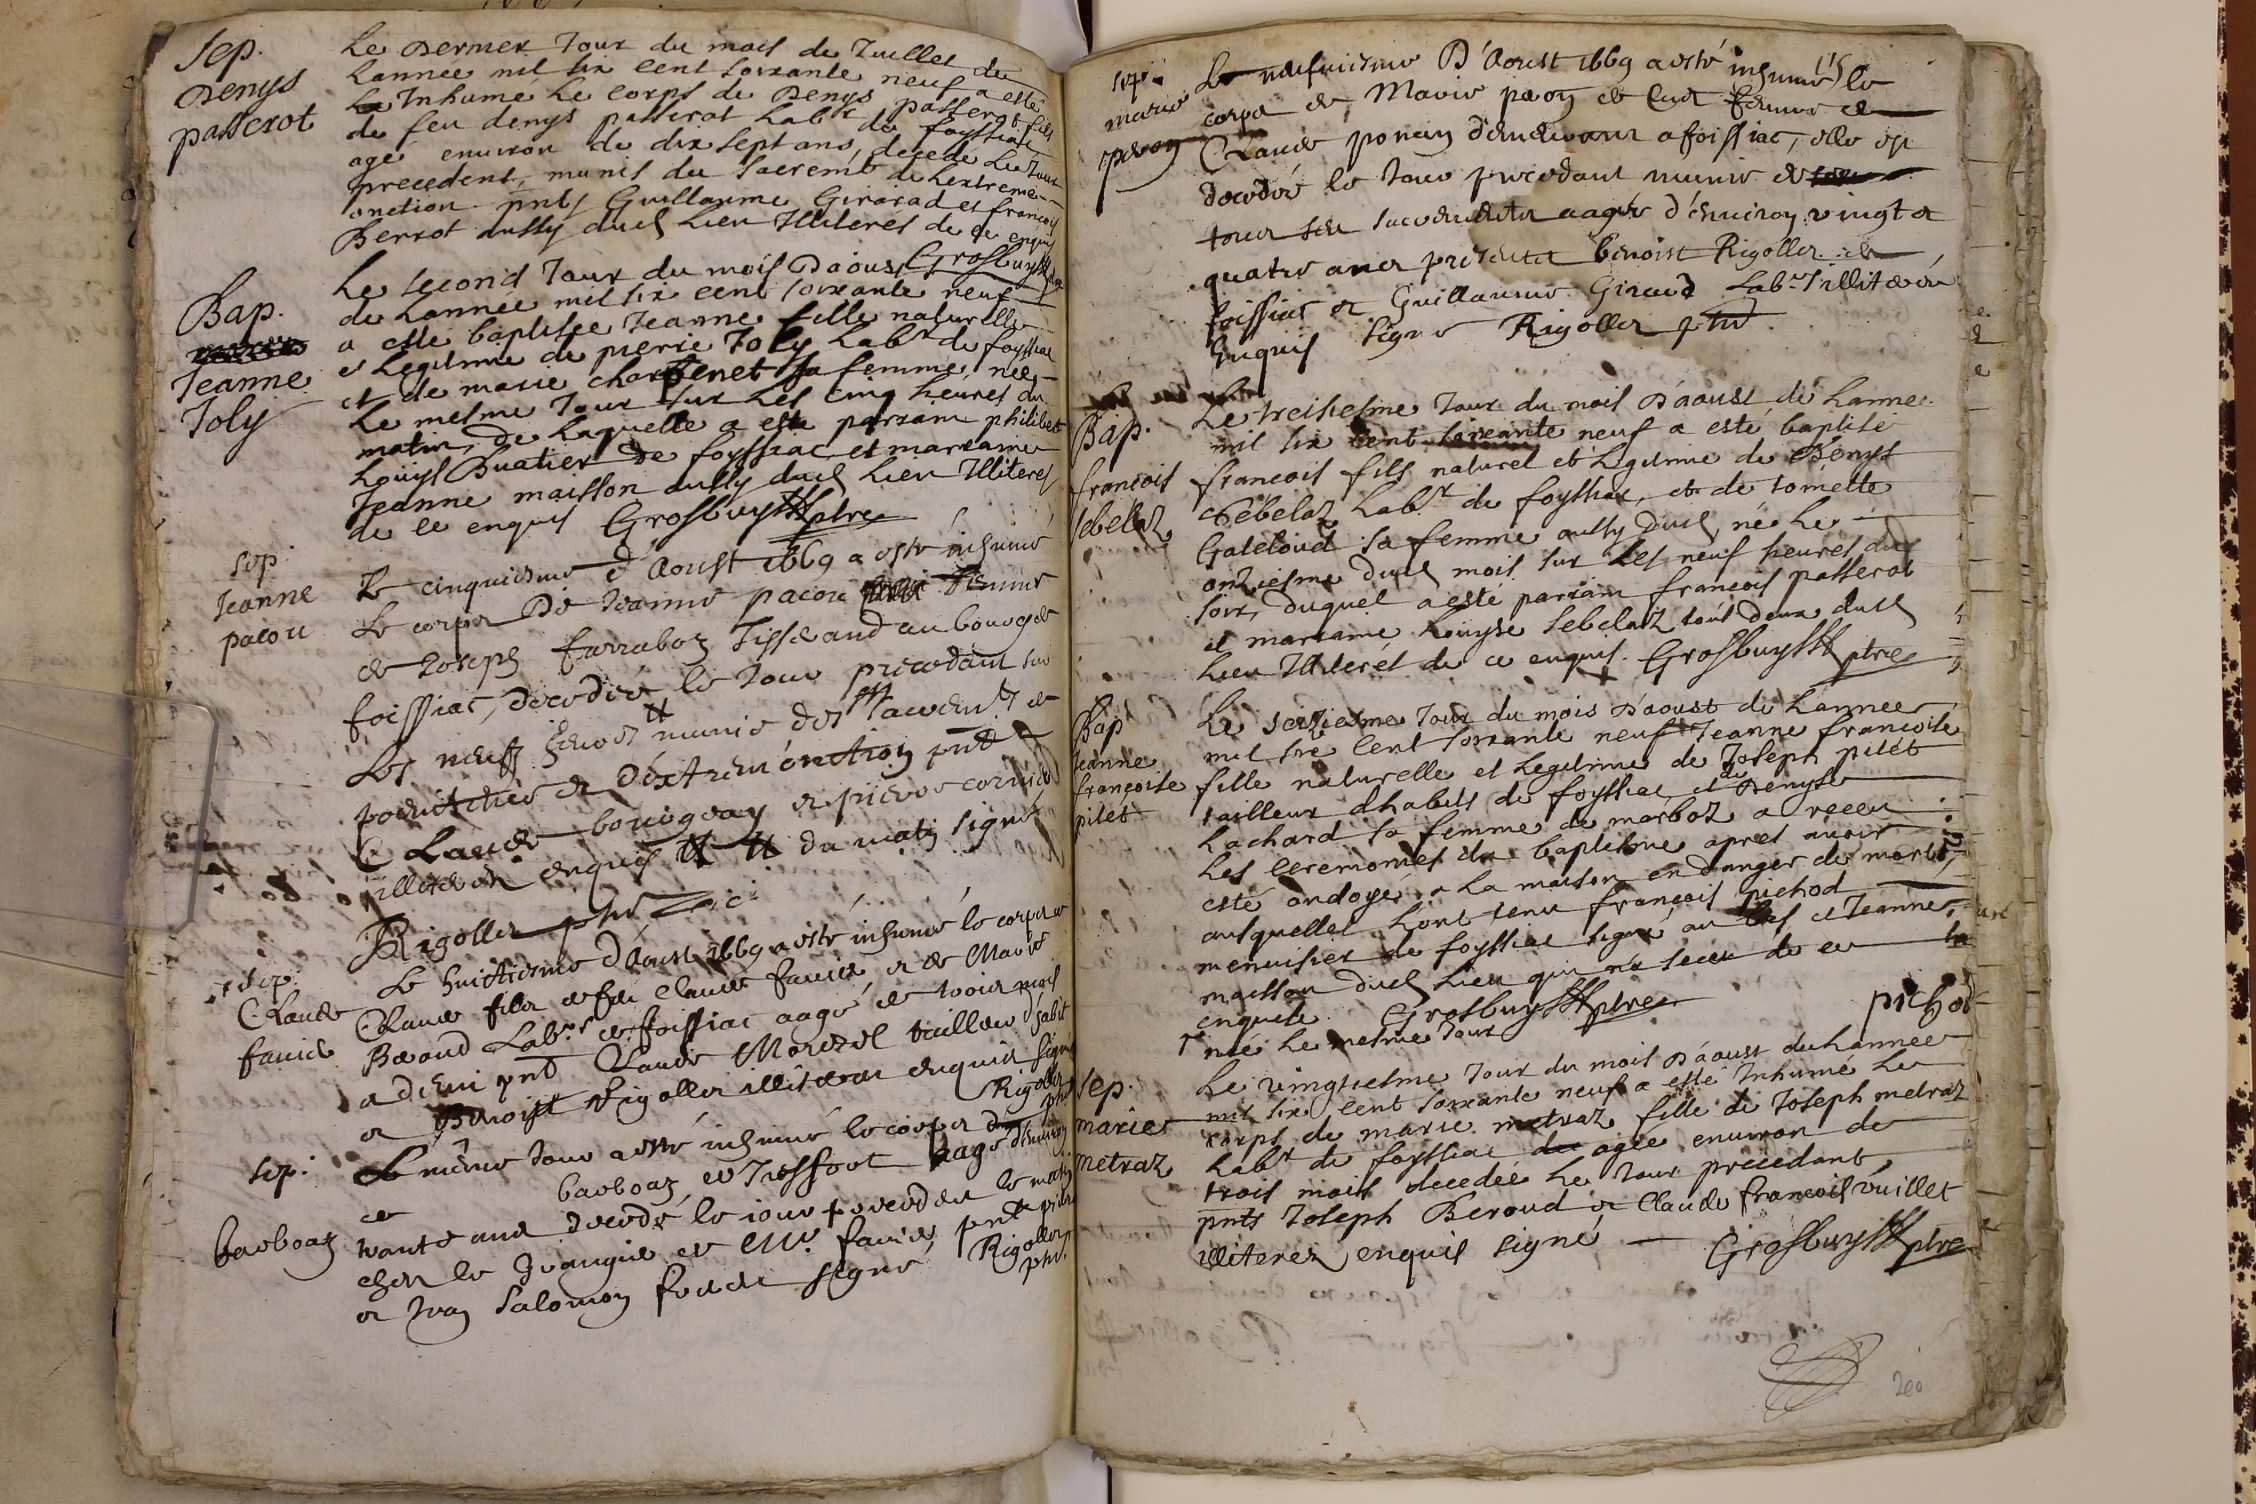 Sep.
Denys
passerot
Le Dernier Jour du mois de Juillet de
Lannée mil six cent soixante neuf a esté
Inhume Le Corps de Denys passerot fils
de feu denys passerot Labr de foyssiac
agé enuiron de dix sept ans, decedé Le Jour
precedent, munis du Sacremt de Lextreme
onction pnts Guillaume Girarad et francois
Berrot aussy dud Lieu Illiterés de ce enquis
Grosbuys ptre
Bap.
Jeanne
Joly
Le second Jour du mois Daoust
de Lannée mil six cent soixante neuf
a esté baptisée Jeanne fille naturelle
et Legitime de pierre Joly Labr de foyssiac
et de marie charbenet sa femme, née
Le mesme Jour sur Les cinq heures du
matin, de Laquelle a esté parram philibert
Louys Buatier de foyssiac et marraine
Jeanne maisson aussy dud Lieu Illiteres
de ce enquis Grosbuys ptre
sep.
Jeanne
pacou
Le cinquiesme d'Aoust 1669 a esté inhumé
Le corps De Jeanne pacou femme
de Joseph farraboz Tisserand au bourg de
foissiac, decedée le Jour precedant sur
Les neuf heures munie des sacremts de
penitence et d'extrem'onction pnts
Claude bourgeay et pierre cornier
illiteres enquis du matin signé
Rigollet ptre
sep.
Claude
faurie
Le huictiesme d'Aoust 1669 a esté inhumé le corps de
Claude fils de feu Claude faurie, et de Marie
Beroud Labrs de foissiac aagé de trois mois
a demi pnts Claude Morezel tailleur d'habit
et Benoist Rigollet illiteres enquis signé
Rigollet
ptre
sep.
barboaz
Le même Jour a esté inhumé le corps
de barboaz de Treffort aagé d'enuiron
trante ans decedé le jour precedent le matin
chez le Grangier de Mr. faurie, pnts
et Jean Salomon signé Rigollet
ptre
sep.
marie
peron
Le neufuiesme D'Aoust 1669 a esté inhumé le
corps de Marie peron
Claude ponein demeurant a foissiac, elle est
decedée le Jour precedant munie de
tous ses sacrements aagée d'enuiron vingt et
quatre ans presents benoist Rigollet de
foissiac et Guillaume Giraud Labrs illiterés
Enquis signé Rigollet ptre
Bap.
francois
sebelaz
Le treisiesme Jour du mois D'aoust de Lannee
mil six cent soixante neuf a esté baptisé
francois fils naturel et Legitime de Denys
Sebelaz Labr de foyssiac, et de tomette
Gateloud sa femme aussy dud, né Le
onziesme dud mois sur Les neuf heures du
soir, duquel a esté parram francois passerot
et marraine Louyse sebelaz tous deux dud
Lieu Illiterés de ce enquis. Grosbuys ptre
Bap
Jeanne
françoise
pilét
Le seiziesme Jour du mois D'aoust de Lannee
mil six Cent soixante neuf Jeanne francoise
fille naturelle et Legitime de Joseph pilét
tailleur dhabits de foyssiac, et de Denyse
Lachard sa femme de marboz a receu
Les Ceremonies du baptesme apres auoir
esté ondoyé a La maison en danger de mort
ausquelles L'ont tenu francois pichod
menuisier de foyssiac signé au bas et Jeanne
maisson dud Lieu qui n'a sceu de ce
enquise. Grosbuys ptre
pichod
née Le mesme Jour
Sep.
marie
metraz
Le vingtiesme Jour du mois D'aoust de Lannee
mil six cent soixante neuf a esté Inhumé Le
corps de marie metraz fille de Joseph metraz
Labr de foyssiac agée enuiron de
trois mois decedée Le Jour precedant,
pnts Joseph Beroud et Claude francois vuillet
illiterez enquis signé Grosbuys ptre
200